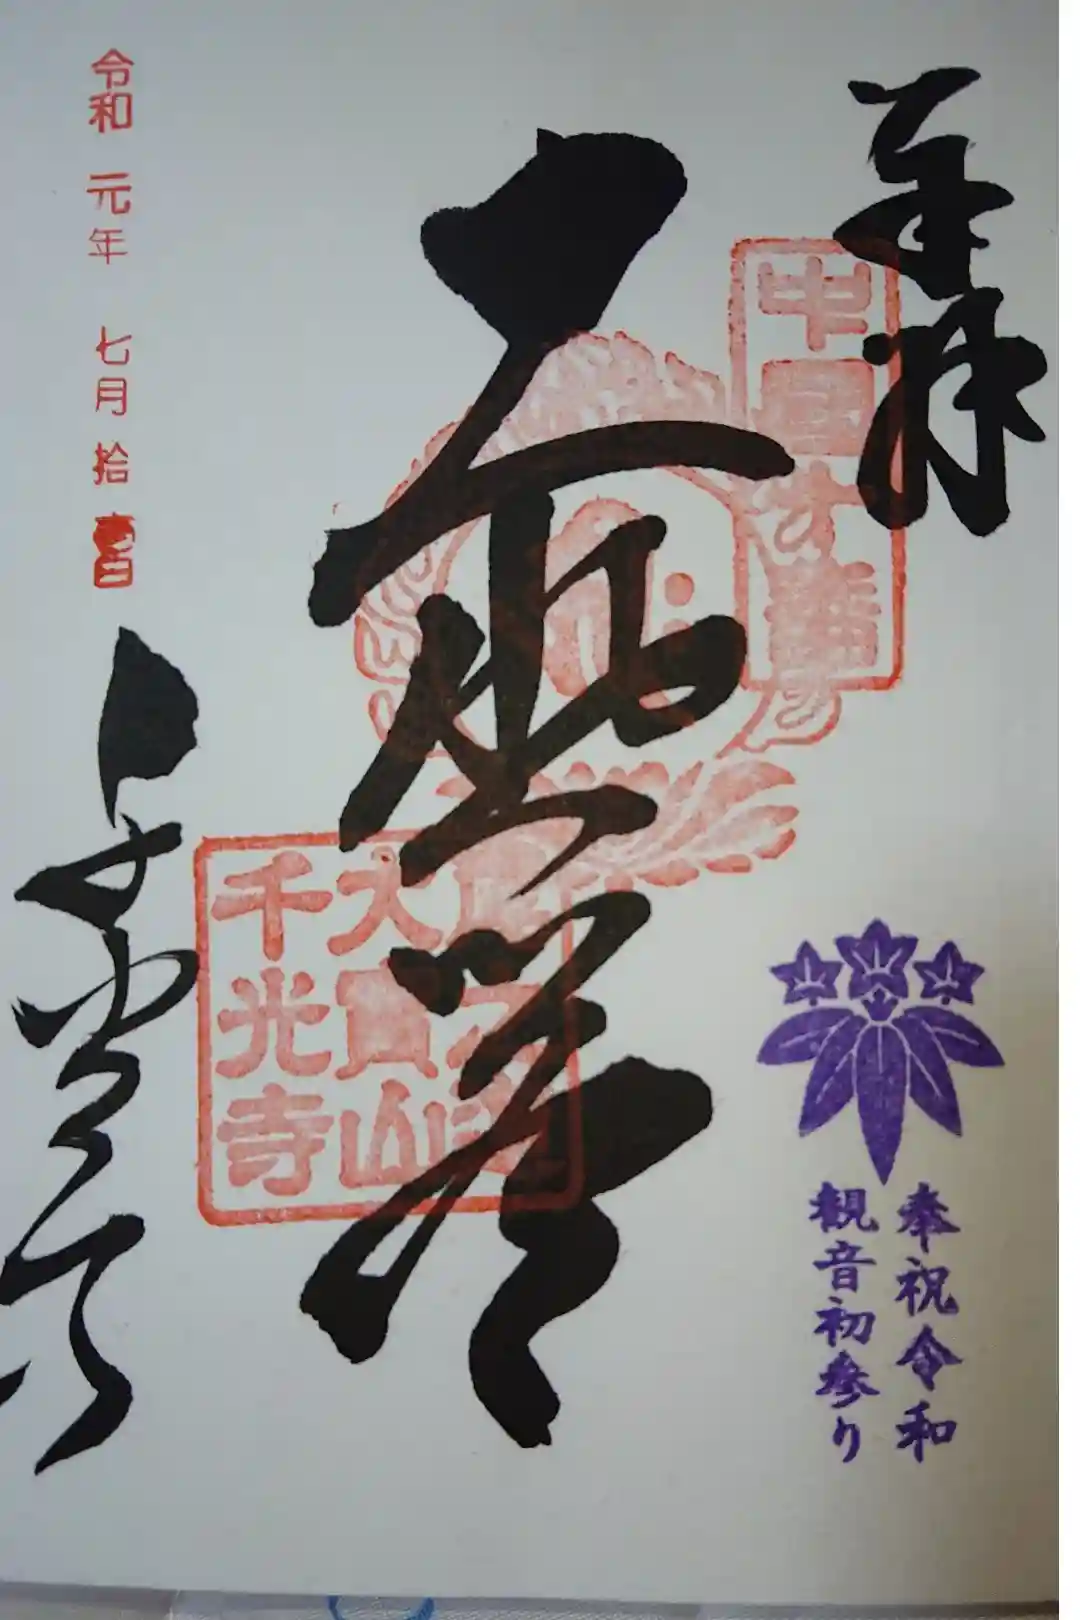 奉拝
中国十番
奉祝令和
観音初参り
大悲閣
大宝山
千光寺
令和元年七月拾壱日
千光寺